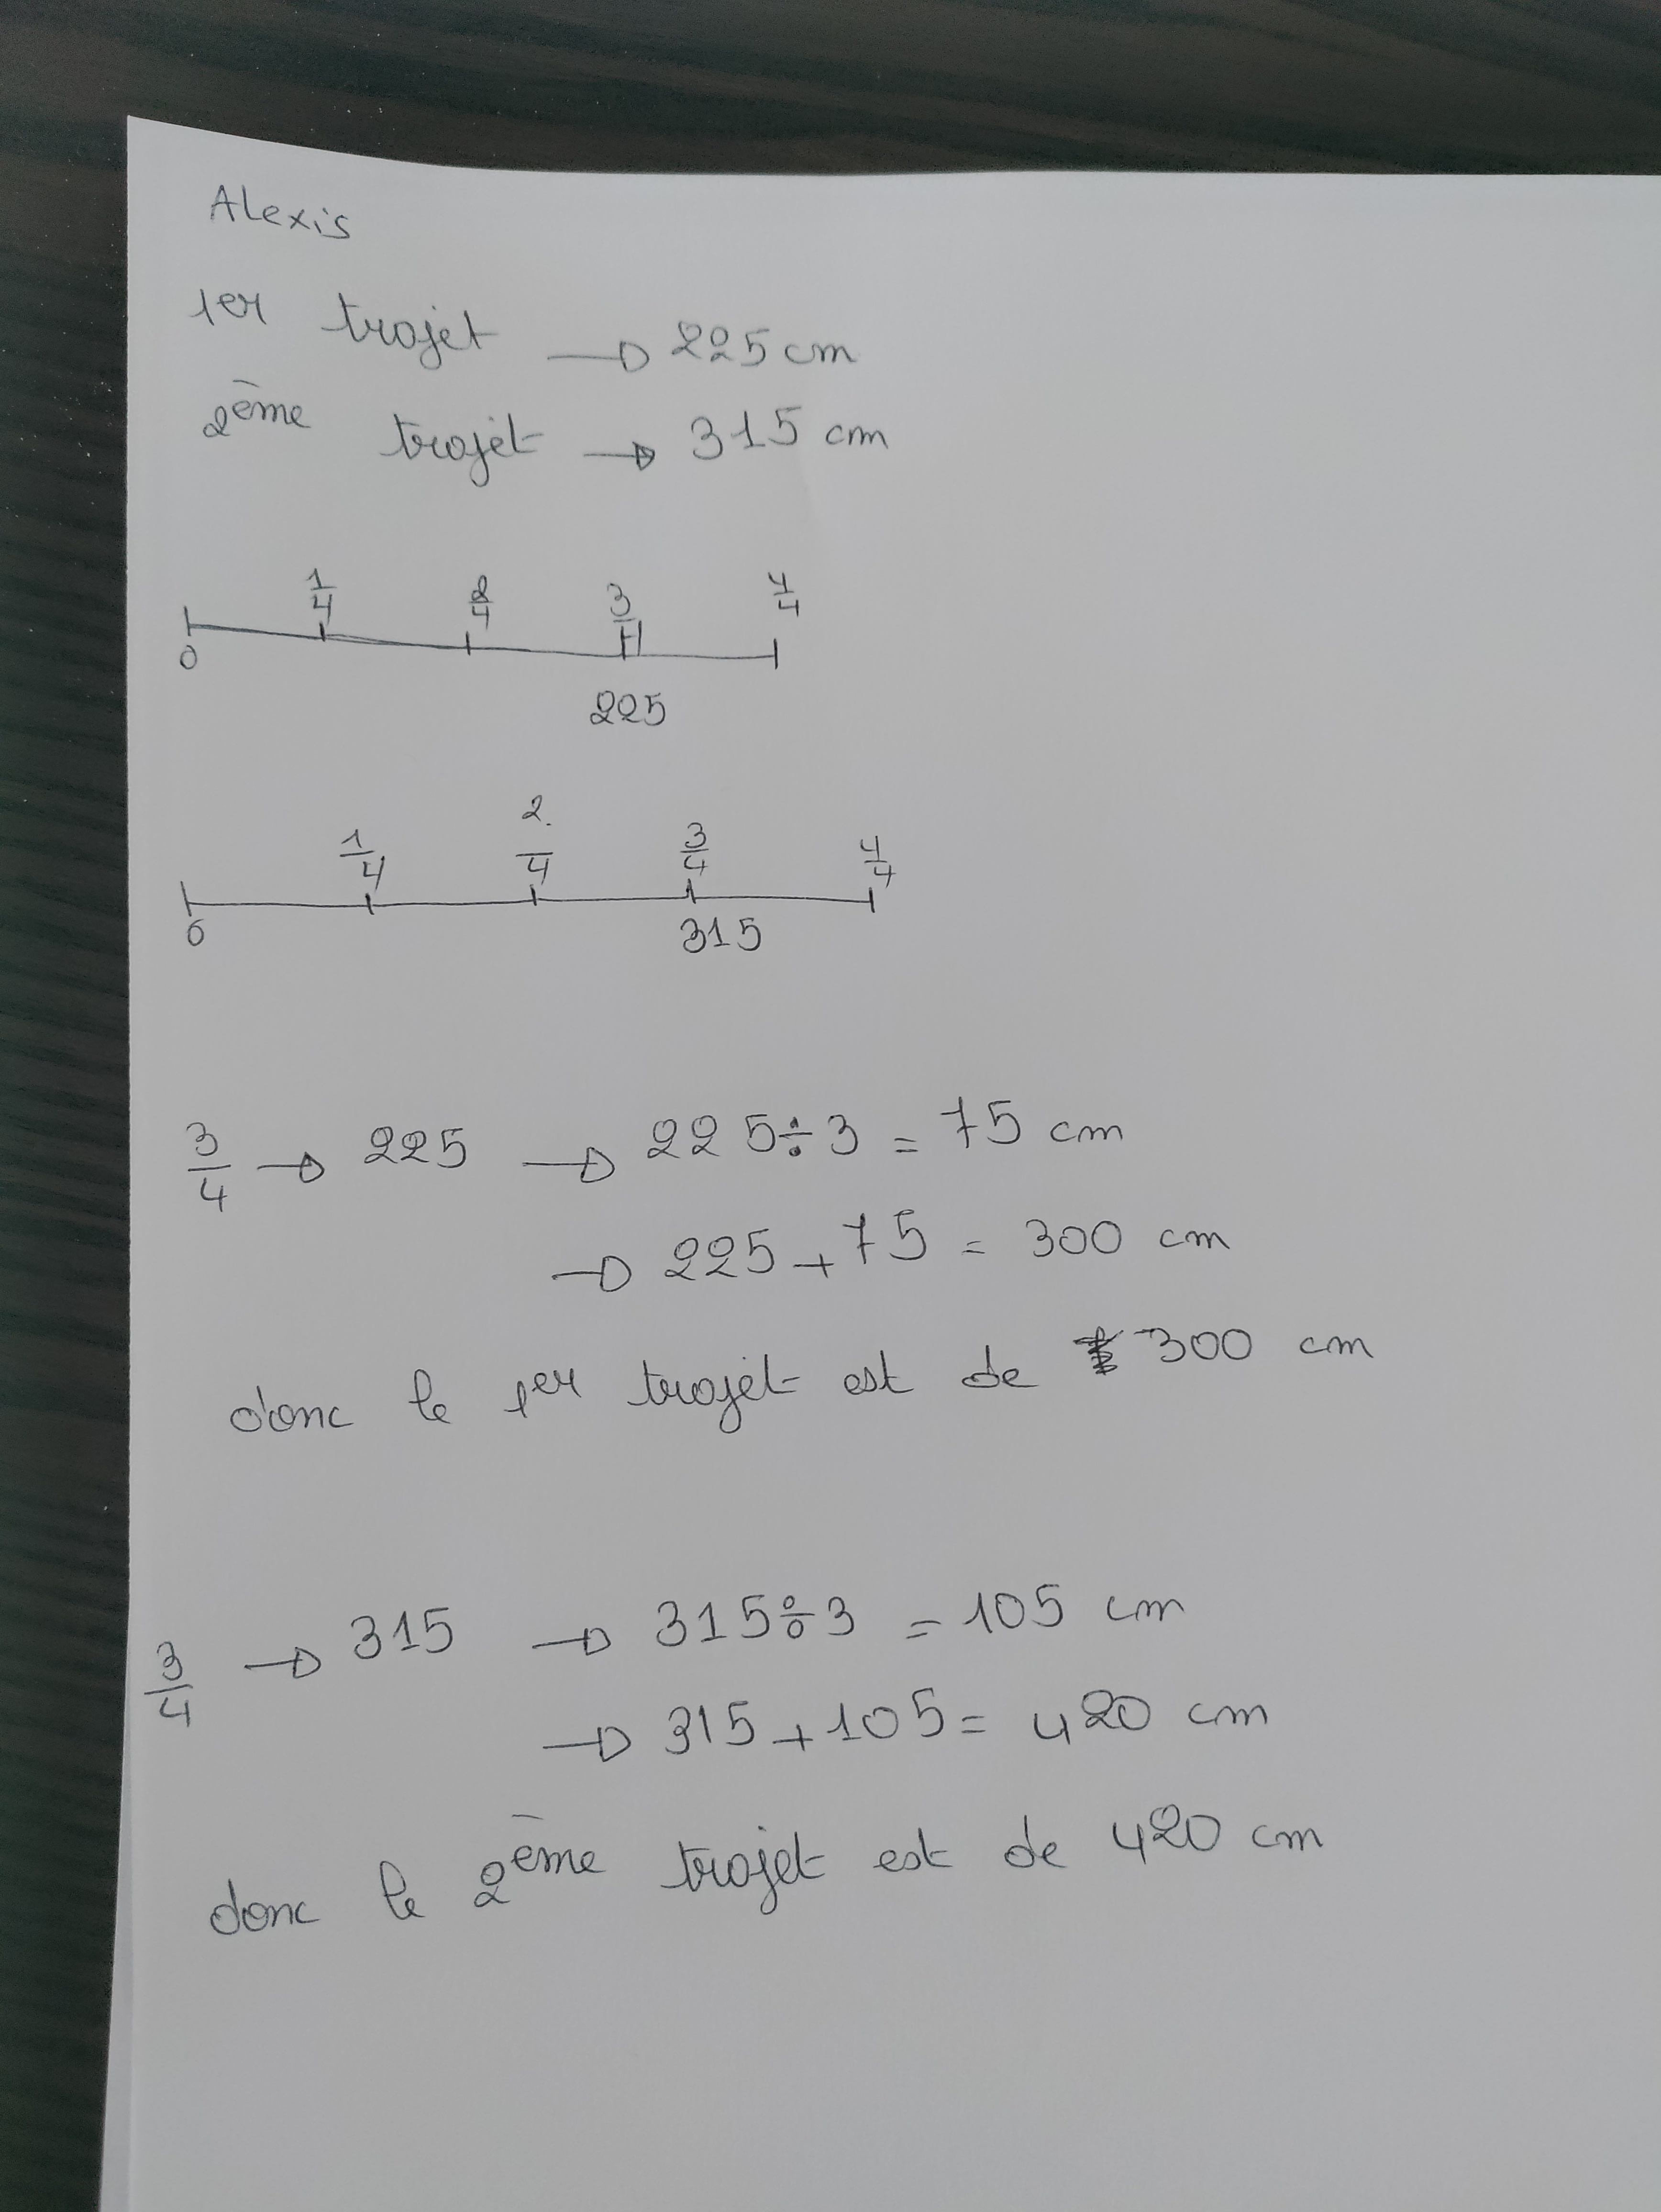 Alexis
1er trajet → 225 cm
2ème trajet → 315 cm
1/4 2/4 3/4 4/4
0
225
1/4 2/4 3/4 4/4
0
315
3/4 → 225 → 225 ÷ 3 = 75 cm
→ 225 + 75 = 300 cm
donc le 1er trajet est de 300 cm
3/4 → 315 → 315 ÷ 3 = 105 cm
→ 315 + 105 = 420 cm
donc le 2ème trajet est de 420 cm